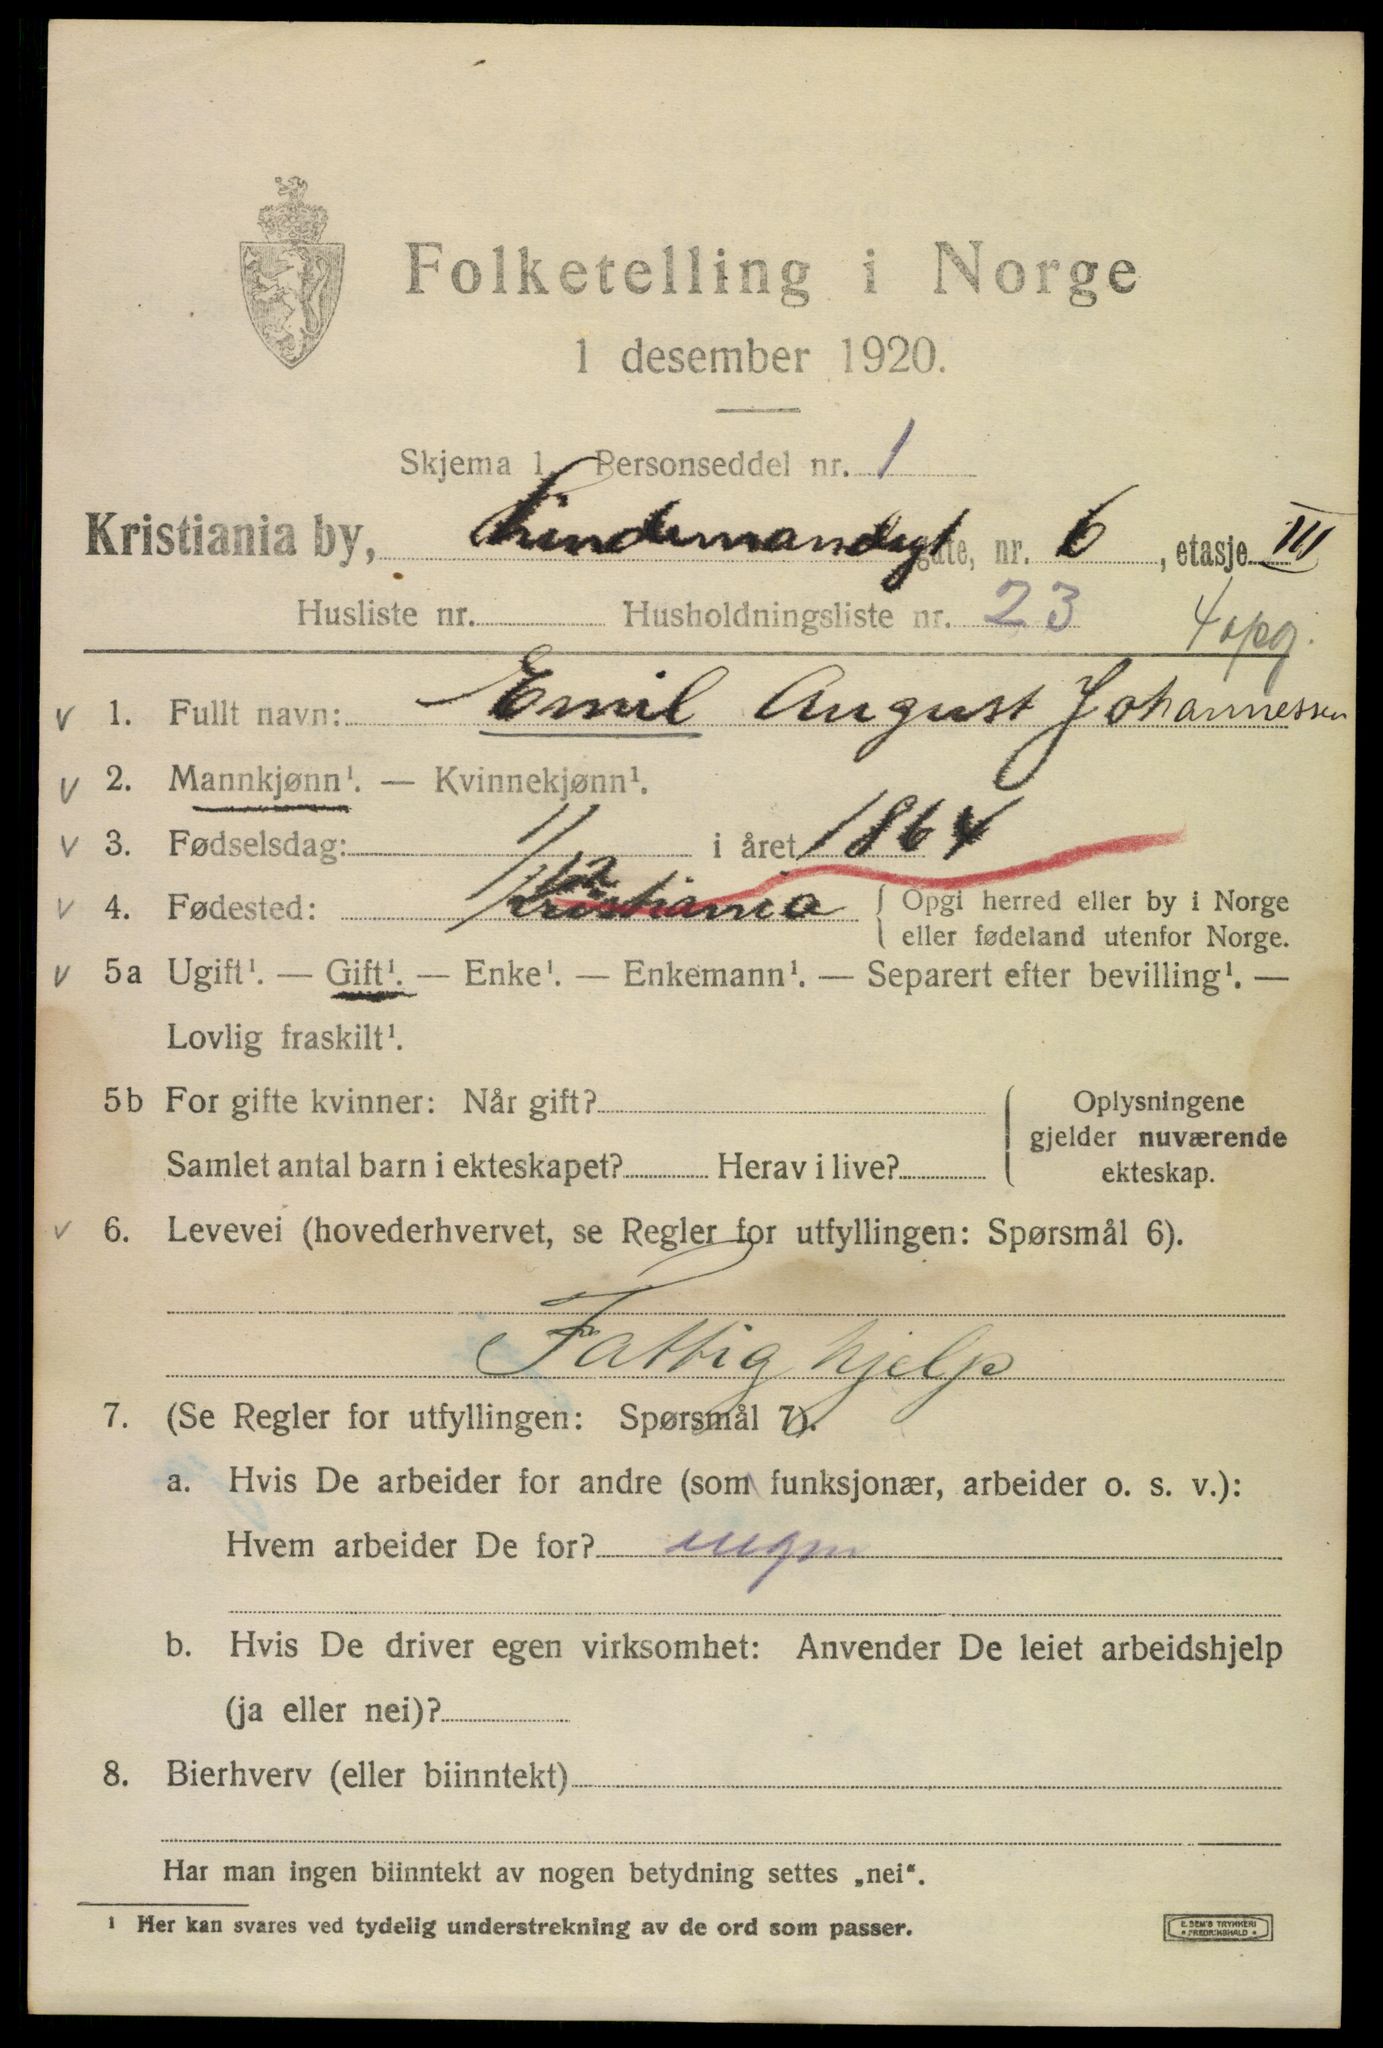 Folketelling i Norge
1 desember 1920.
Skjema 1. Personseddel nr. 1
Kristiania by, gate, nr. 6, etasje III
Husliste nr. Husholdningsliste nr. 23 4 opg.
v 1. Fullt navn: Emil August Johannessen
v 2. Mannkjønn¹. — Kvinnekjønn¹.
v 3. Fødselsdag: 11/12 i året 1864
v 4. Fødested: Kristiania { Opgi herred eller by i Norge
eller fødeland utenfor Norge.
v 5a Ugift¹. — Gift¹. — Enke¹. — Enkemann¹. — Separert efter bevilling¹. —
Lovlig fraskilt¹.
5b For gifte kvinner: Når gift? { Oplysningene
gjelder nuværende
Samlet antal barn i ekteskapet? Herav i live? ekteskap.
v 6. Levevei (hovederhvervet, se Regler for utfyllingen: Spørsmål 6).
Fattighjelp
7. (Se Regler for utfyllingen: Spørsmål 7).
a. Hvis De arbeider for andre (som funksjonær, arbeider o. s. v.):
Hvem arbeider De for? ingen
b. Hvis De driver egen virksomhet: Anvender De leiet arbeidshjelp
(ja eller nei)?
8. Bierhverv (eller biinntekt)
Har man ingen biinntekt av nogen betydning settes „nei“.
¹ Her kan svares ved tydelig understrekning av de ord som passer.
E. SEM'S TRYKKERI
* FREDRIKSHALD *